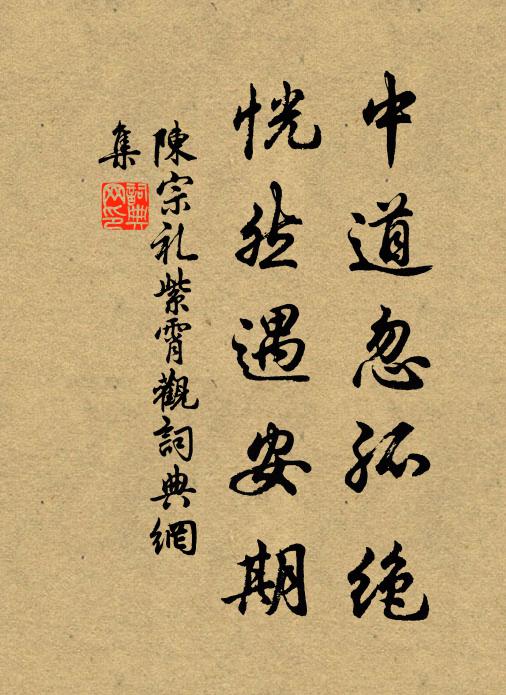 中道忽孤绝
恍然遇安期
陳宗礼紫霄觀詞典網
集
詞典
网印